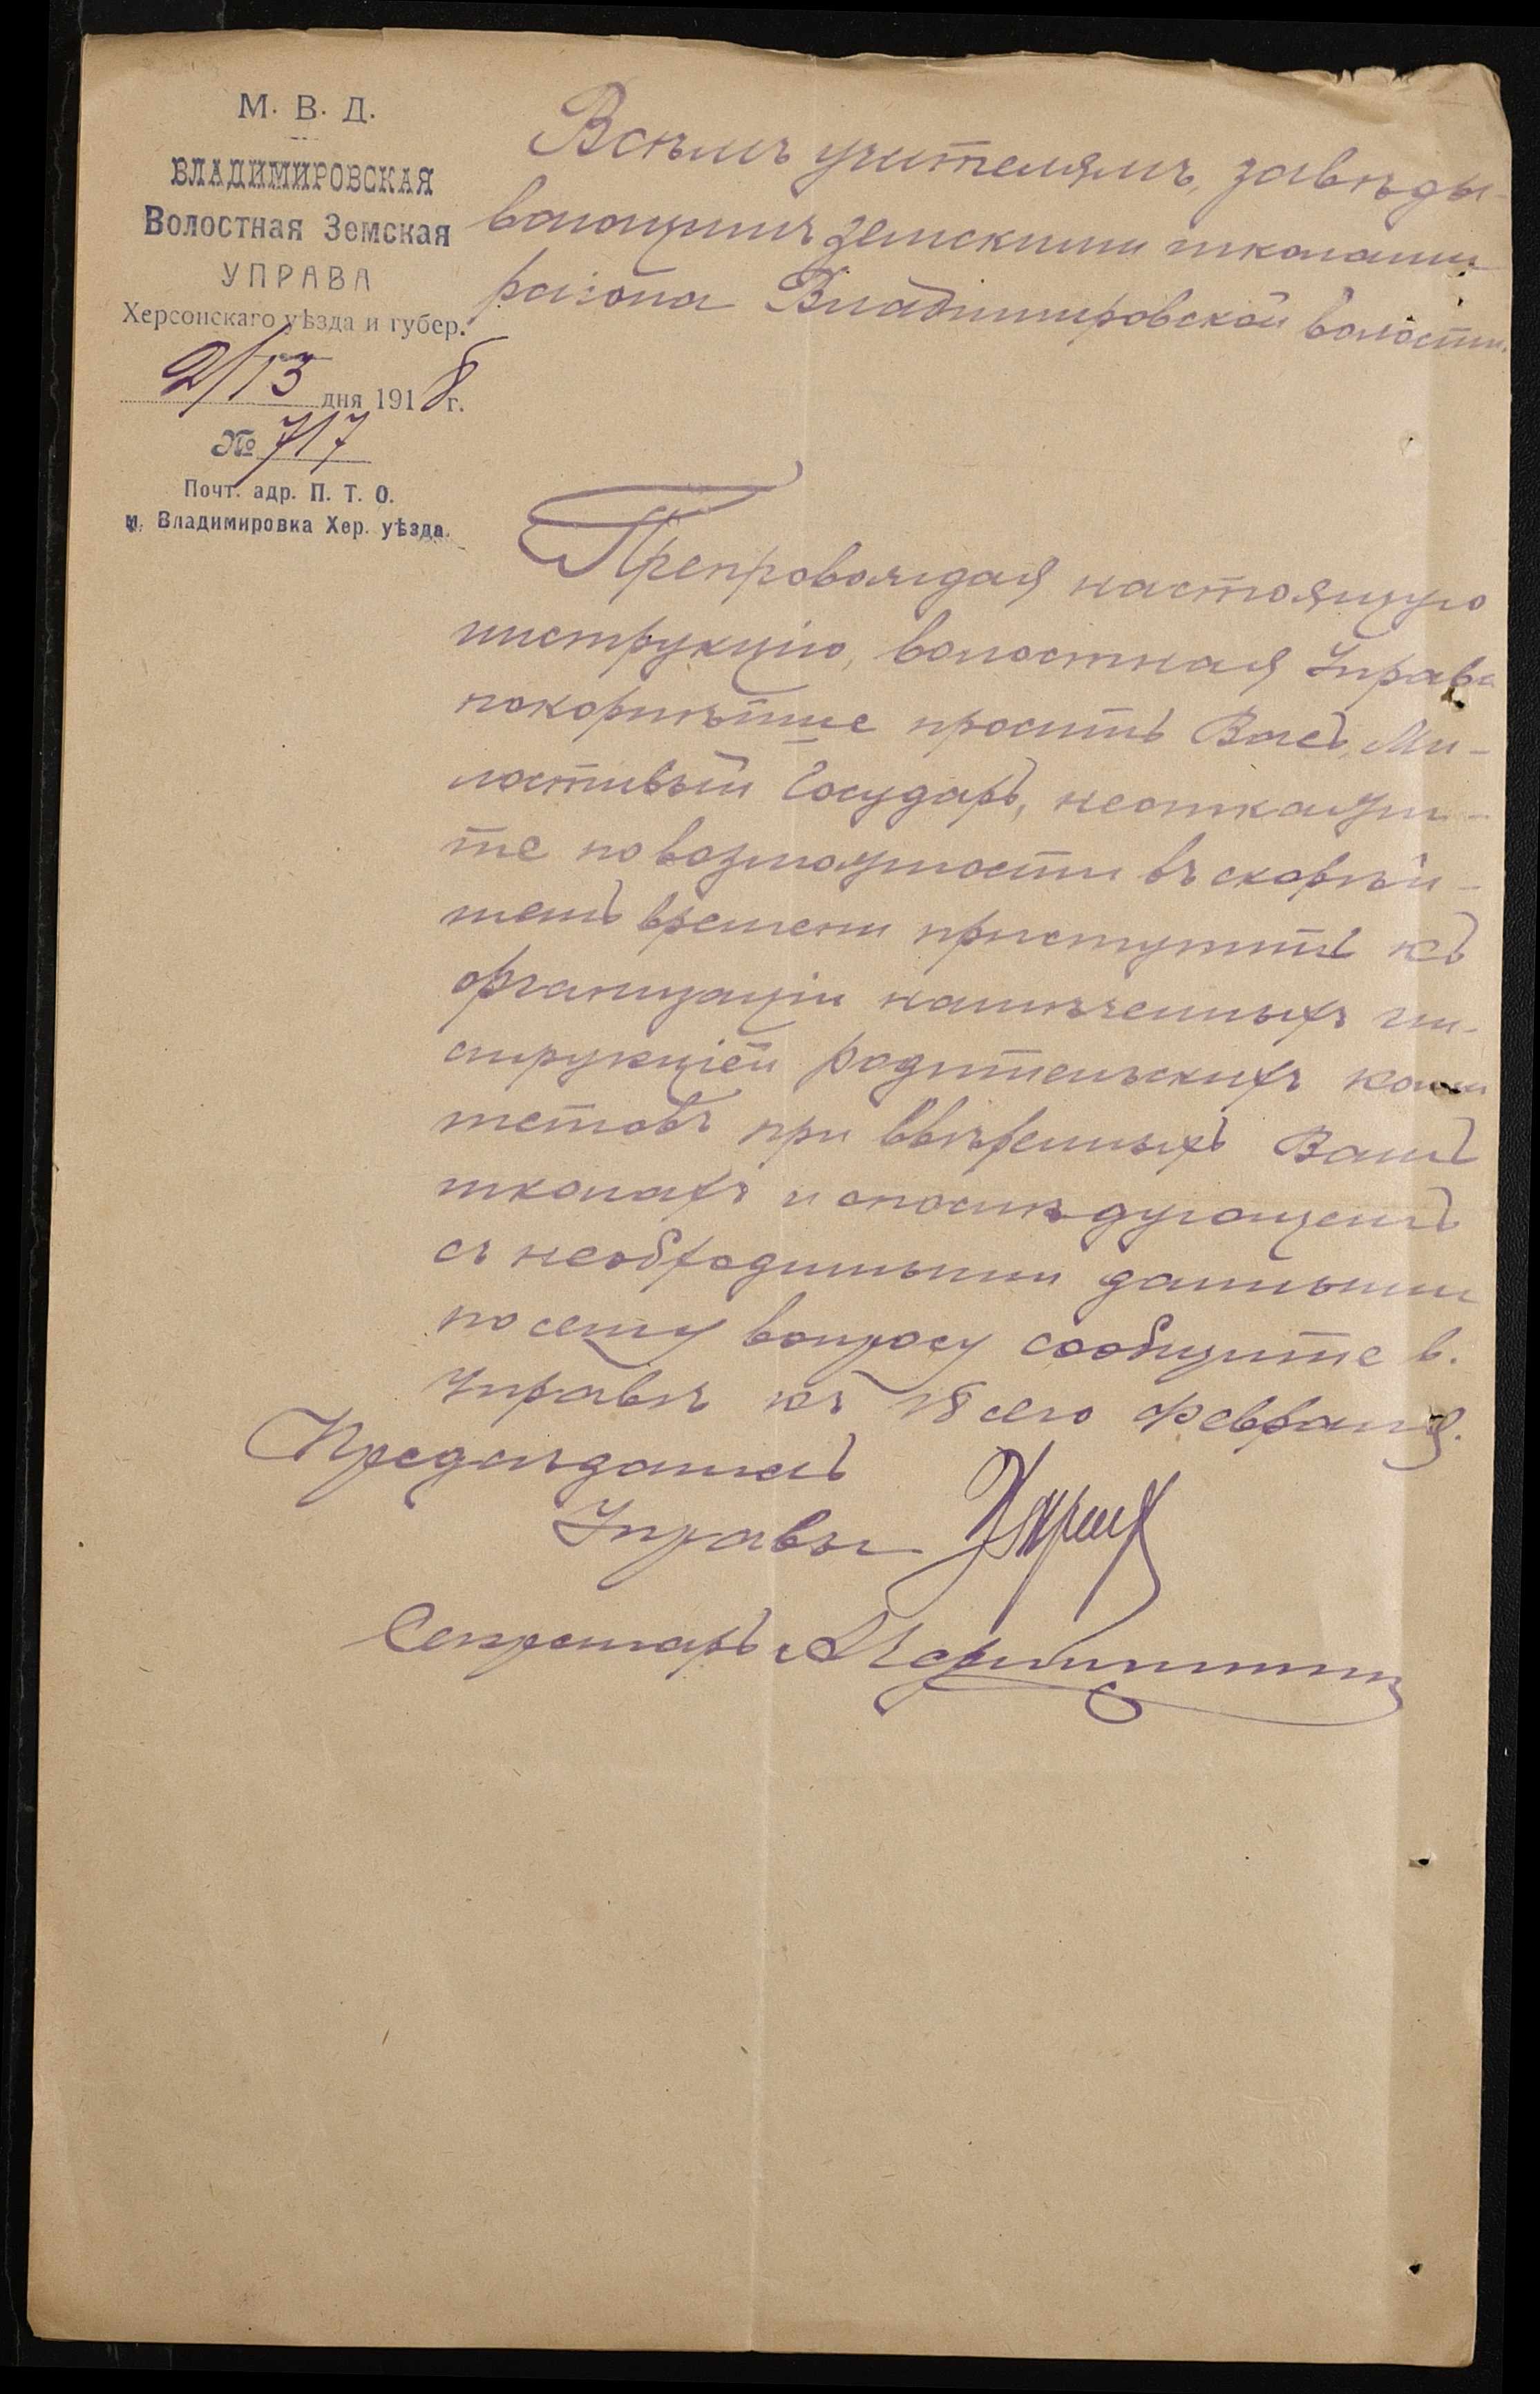 М. В. Д.
ВЛАДИМИРОВСКАЯ
Волостная Земская
УПРАВА
Херсонскаго уѣзда и губер.
2/13 дня 1918 г.
№ 717
Почт. адр. П. Т. О.
м. Владимировка Хер. уѣзда.
Всѣмъ учителямъ, завѣды-
вающимъ земскими школами
района Владимировской волости.
Препровождая настоящую
инструкцію, волостная Управа
покорнѣйше проситъ Васъ, Ми-
лостивый Государь, неоткажи-
те по возможности въ скорѣй-
шемъ времени приступить къ
организаціи намѣченныхъ ин-
струкціей родительскихъ коми
тетовъ при ввѣренныхъ Вамъ
школахъ и о послѣдующемъ
съ необходимыми данными
по сему вопросу сообщите в.
Управѣ къ 18 сего февраля.
Предсѣдатель
Управы
Секретарь